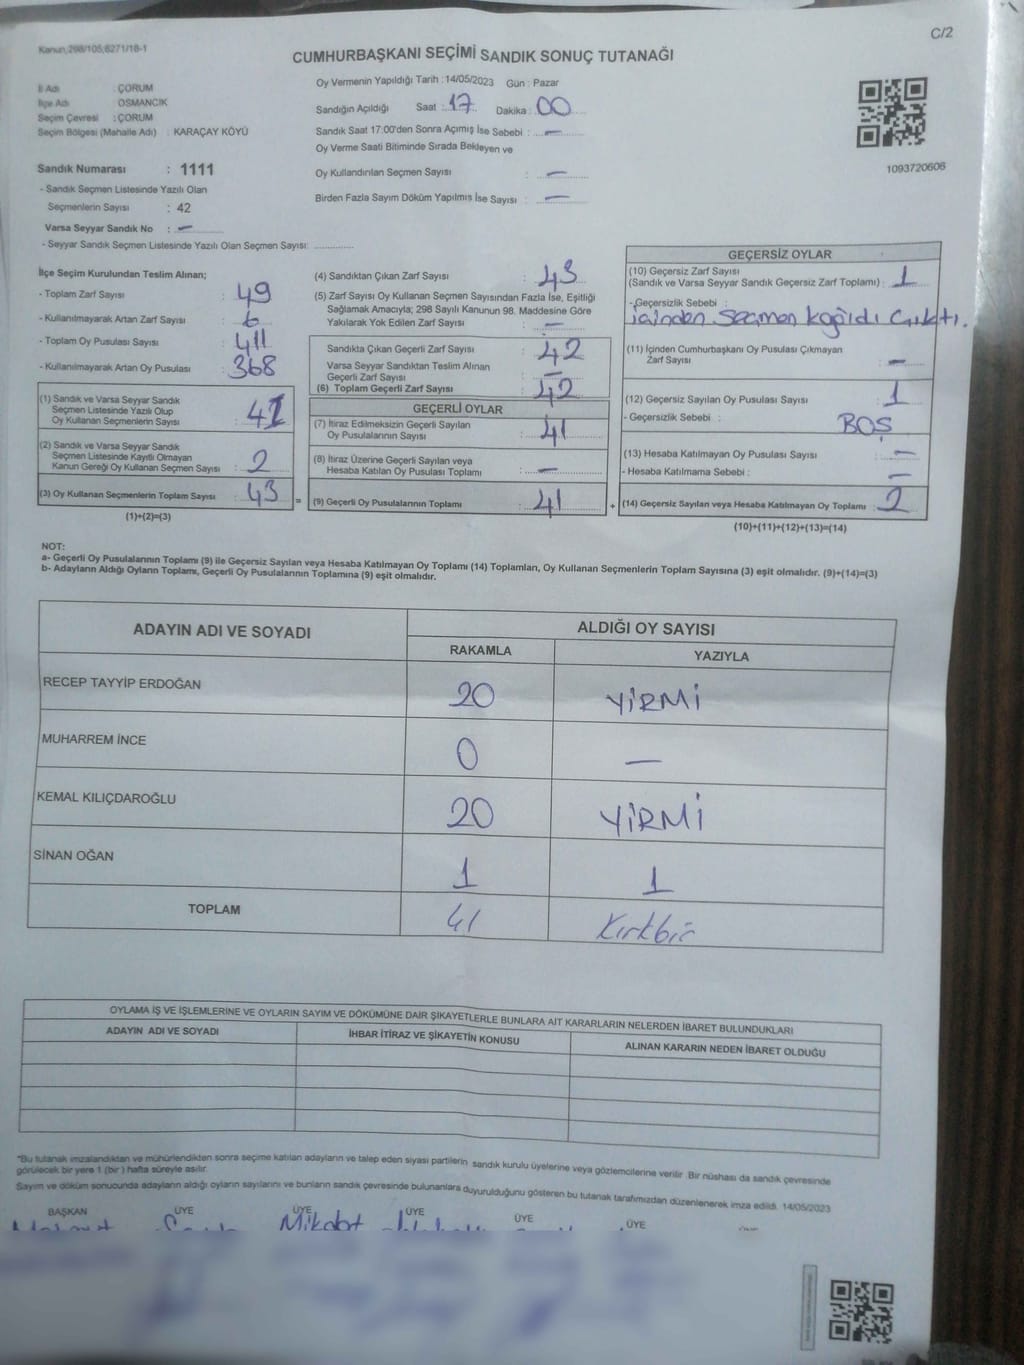 Kanun,298/105,6271/18-1
C/2
CUMHURBAŞKANI SEÇİMİ SANDIK SONUÇ TUTANAĞI
İl Adı : ÇORUM
İlçe Adı : OSMANCIK
Seçim Çevresi : ÇORUM
Seçim Bölgesi (Mahalle Adı) : KARAÇAY KÖYÜ
Oy Vermenin Yapıldığı Tarih :14/05/2023 Gün : Pazar
Sandığın Açıldığı Saat : 17 Dakika : 00
Sandık Saat 17:00'den Sonra Açımış İse Sebebi : —
Oy Verme Saati Bitiminde Sırada Bekleyen ve
Oy Kullandırılan Seçmen Sayısı : —
Birden Fazla Sayım Döküm Yapılmış İse Sayısı : —
1093720606
Sandık Numarası : 1111
- Sandık Seçmen Listesinde Yazılı Olan
Seçmenlerin Sayısı : 42
Varsa Seyyar Sandık No : —
- Seyyar Sandık Seçmen Listesinde Yazılı Olan Seçmen Sayısı: ..............
İlçe Seçim Kurulundan Teslim Alınan;
- Toplam Zarf Sayısı : 49
- Kullanılmayarak Artan Zarf Sayısı : 6
- Toplam Oy Pusulası Sayısı : 411
- Kullanılmayarak Artan Oy Pusulası : 368
(1) Sandık ve Varsa Seyyar Sandık
Seçmen Listesinde Yazılı Olup
Oy Kullanan Seçmenlerin Sayısı : 41
(2) Sandık ve Varsa Seyyar Sandık
Seçmen Listesinde Kayıtlı Olmayan
Kanun Gereği Oy Kullanan Seçmen Sayısı : 2
(3) Oy Kullanan Seçmenlerin Toplam Sayısı : 43
(1)+(2)=(3)
(4) Sandıktan Çıkan Zarf Sayısı : 43
(5) Zarf Sayısı Oy Kullanan Seçmen Sayısından Fazla İse, Eşitliği
Sağlamak Amacıyla; 298 Sayılı Kanunun 98. Maddesine Göre
Yakılarak Yok Edilen Zarf Sayısı : —
Sandıkta Çıkan Geçerli Zarf Sayısı : 42
Varsa Seyyar Sandıktan Teslim Alınan
Geçerli Zarf Sayısı : —
(6) Toplam Geçerli Zarf Sayısı : 42
GEÇERLİ OYLAR
(7) İtiraz Edilmeksizin Geçerli Sayılan
Oy Pusulalarının Sayısı : 41
(8) İtiraz Üzerine Geçerli Sayılan veya
Hesaba Katılan Oy Pusulası Toplamı : —
= (9) Geçerli Oy Pusulalarının Toplamı : 41
GEÇERSİZ OYLAR
(10) Geçersiz Zarf Sayısı
(Sandık ve Varsa Seyyar Sandık Geçersiz Zarf Toplamı) : 1
- Geçersizlik Sebebi :
içinden seçmen kağıdı çıktı.
(11) İçinden Cumhurbaşkanı Oy Pusulası Çıkmayan
Zarf Sayısı : —
(12) Geçersiz Sayılan Oy Pusulası Sayısı : 1
- Geçersizlik Sebebi : BOŞ
(13) Hesaba Katılmayan Oy Pusulası Sayısı : —
- Hesaba Katılmama Sebebi : —
+ (14) Geçersiz Sayılan veya Hesaba Katılmayan Oy Toplamı : 2
(10)+(11)+(12)+(13)=(14)
NOT:
a- Geçerli Oy Pusulalarının Toplamı (9) ile Geçersiz Sayılan veya Hesaba Katılmayan Oy Toplamı (14) Toplamları, Oy Kullanan Seçmenlerin Toplam Sayısına (3) eşit olmalıdır. (9)+(14)=(3)
b- Adayların Aldığı Oyların Toplamı, Geçerli Oy Pusulalarının Toplamına (9) eşit olmalıdır.
ADAYIN ADI VE SOYADI ALDIĞI OY SAYISI
RAKAMLA YAZIYLA
RECEP TAYYİP ERDOĞAN 20 YİRMİ
MUHARREM İNCE 0 —
KEMAL KILIÇDAROĞLU 20 YİRMİ
SİNAN OĞAN 1 1
TOPLAM 41 Kırkbir
OYLAMA İŞ VE İŞLEMLERİNE VE OYLARIN SAYIM VE DÖKÜMÜNE DAİR ŞİKAYETLERLE BUNLARA AİT KARARLARIN NELERDEN İBARET BULUNDUKLARI
ADAYIN ADI VE SOYADI İHBAR İTİRAZ VE ŞİKAYETİN KONUSU ALINAN KARARIN NEDEN İBARET OLDUĞU
*Bu tutanak imzalandıktan ve mühürlendikten sonra seçime katılan adayların ve talep eden siyasi partilerin sandık kurulu üyelerine veya gözlemcilerine verilir. Bir nüshası da sandık çevresinde
görülecek bir yere 1 (bir ) hafta süreyle asılır.
Sayım ve döküm sonucunda adayların aldığı oyların sayılarını ve bunların sandık çevresinde bulunanlara duyurulduğunu gösteren bu tutanak tarafımızdan düzenlenerek imza edildi. 14/05/2023
BAŞKAN ÜYE ÜYE ÜYE ÜYE ÜYE
Mikdat